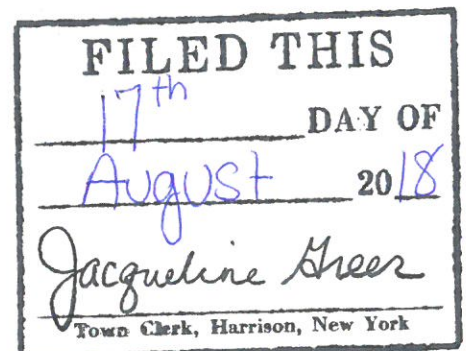 FILED THIS
17th DAY OF
August 2018
Jacqueline Greer
Town Clerk, Harrison, New York